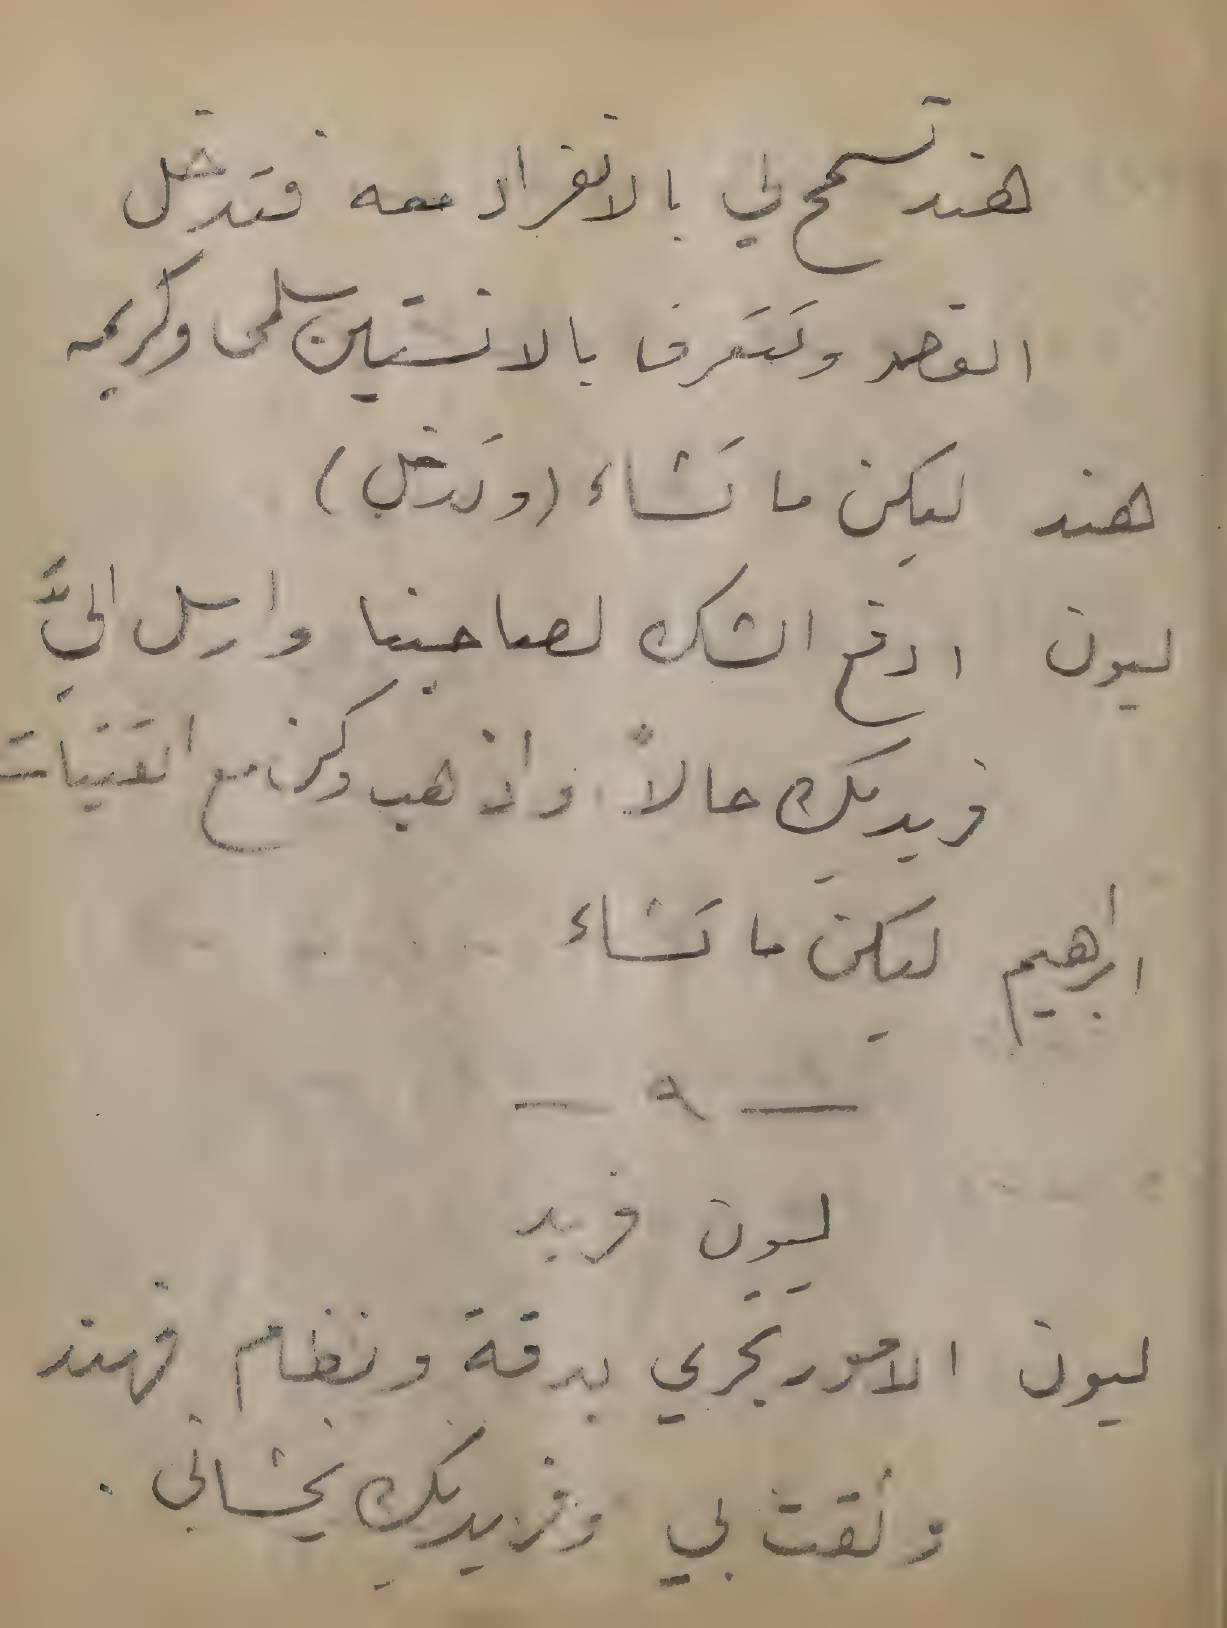 هند تسمح لي بالانفراد معه فتدخل
القصر وتتعرف بالانستين سلمى وكريمه
هند ليكن ما تشاء (وتدخل)
ليون ادفع الشك لصاحبنا وارسل اليَّ
فريد بك حالاً واذهب وكن مع الفتيات
ابرهيم ليكن ما تشاء
— ٩ —
ليون فريد
ليون الامور تجري بدقة ونظام فهند
وثقت بي وفريد بك يخشاني .